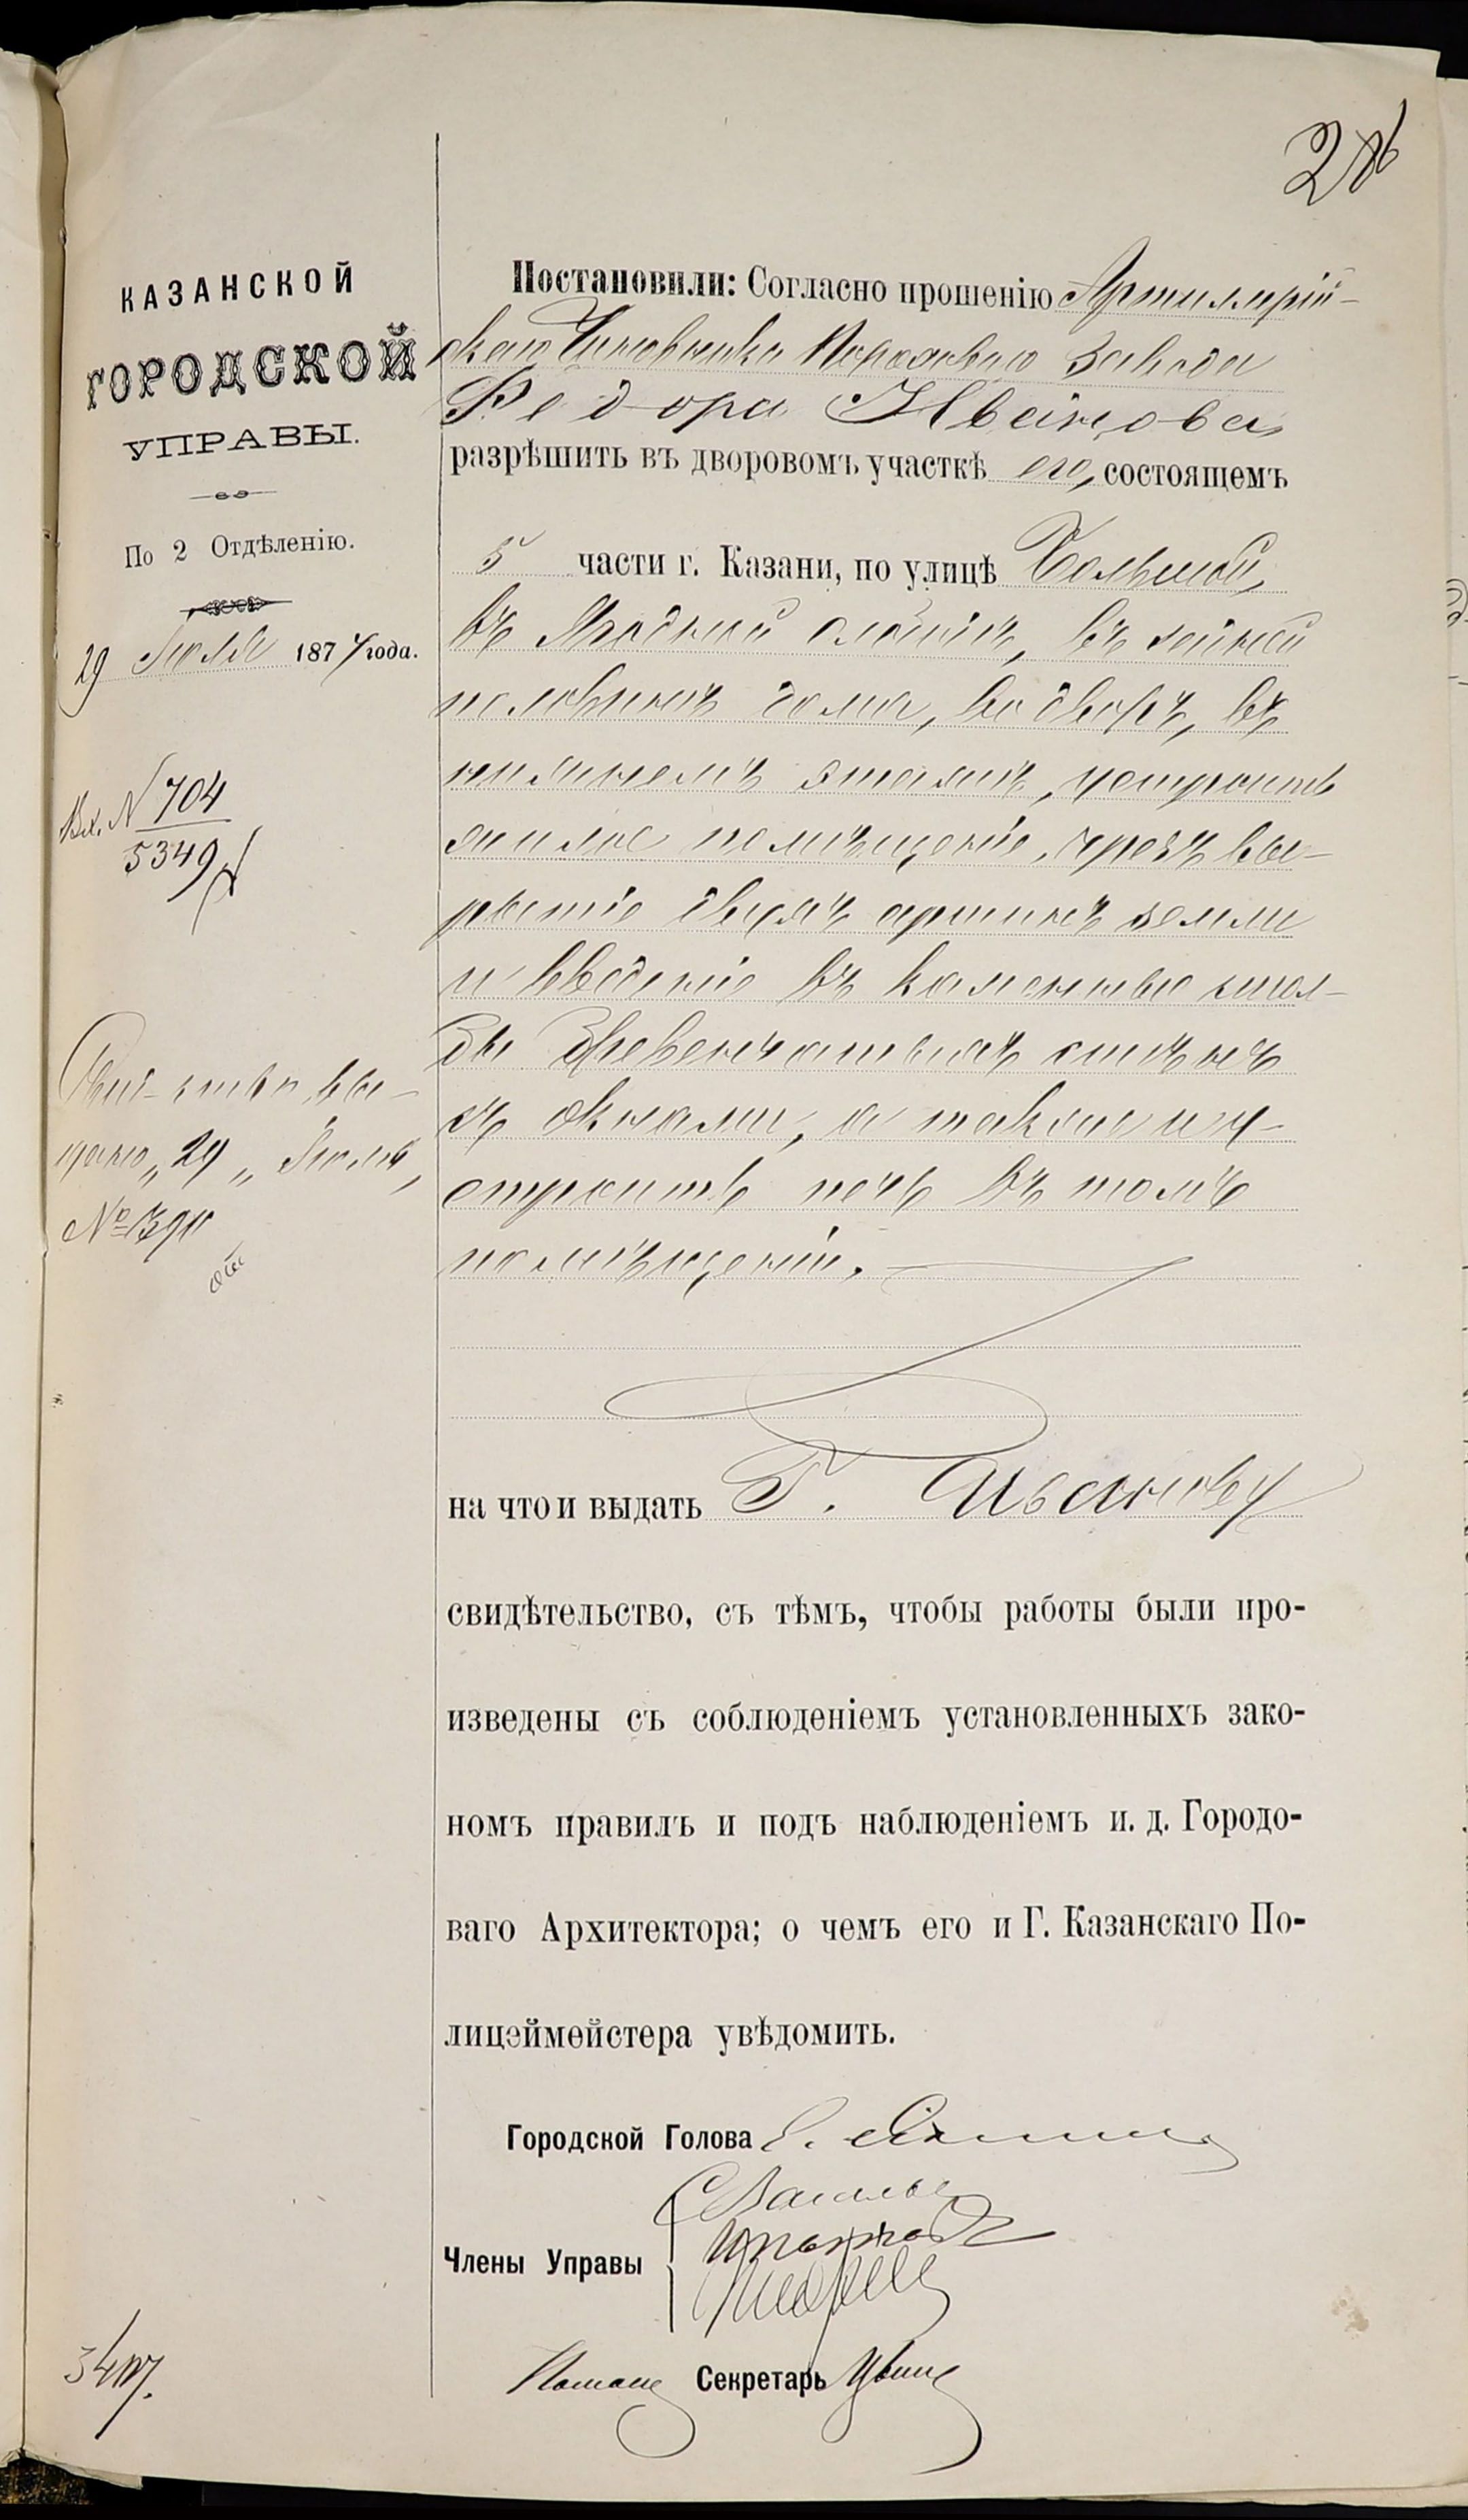 КАЗАНСКОЙ
ГОРОДСКОЙ
УПРАВЫ.
По 2 Отдѣленію.
29 Іюля 187 года.
Вх. № 704
5349
Свид-ство вы-
дано „29„ Іюля,
Постановили: Согласно прошенію Артиллерій-
скаго Чиновника Пороховаго завода
Федора Иванова
разрѣшить въ дворовомъ участкѣ его, состоящемъ
5 части г. Казани, по улицѣ Большой,
въ Ягодной слободѣ, въ задней
половинѣ дома, во дворѣ, въ
нижнемъ этажѣ, устроить
жилое помѣщеніе, чрезъ вы-
рытіе двухъ аршинъ земли
и введеніе въ каменные стол-
бы бревенчатыхъ стѣнъ
съ окнами, а также и у-
строить печь въ томъ
помѣщеніи.
на что и выдать Г. Иванову
свидѣтельство, съ тѣмъ, чтобы работы были про-
изведены съ соблюденіемъ установленныхъ зако-
номъ правилъ и подъ наблюденіемъ и. д. Городо-
ваго Архитектора; о чемъ его и Г. Казанскаго По-
лицеймейстера увѣдомить.
Городской Голова
Члены Управы
Секретарь